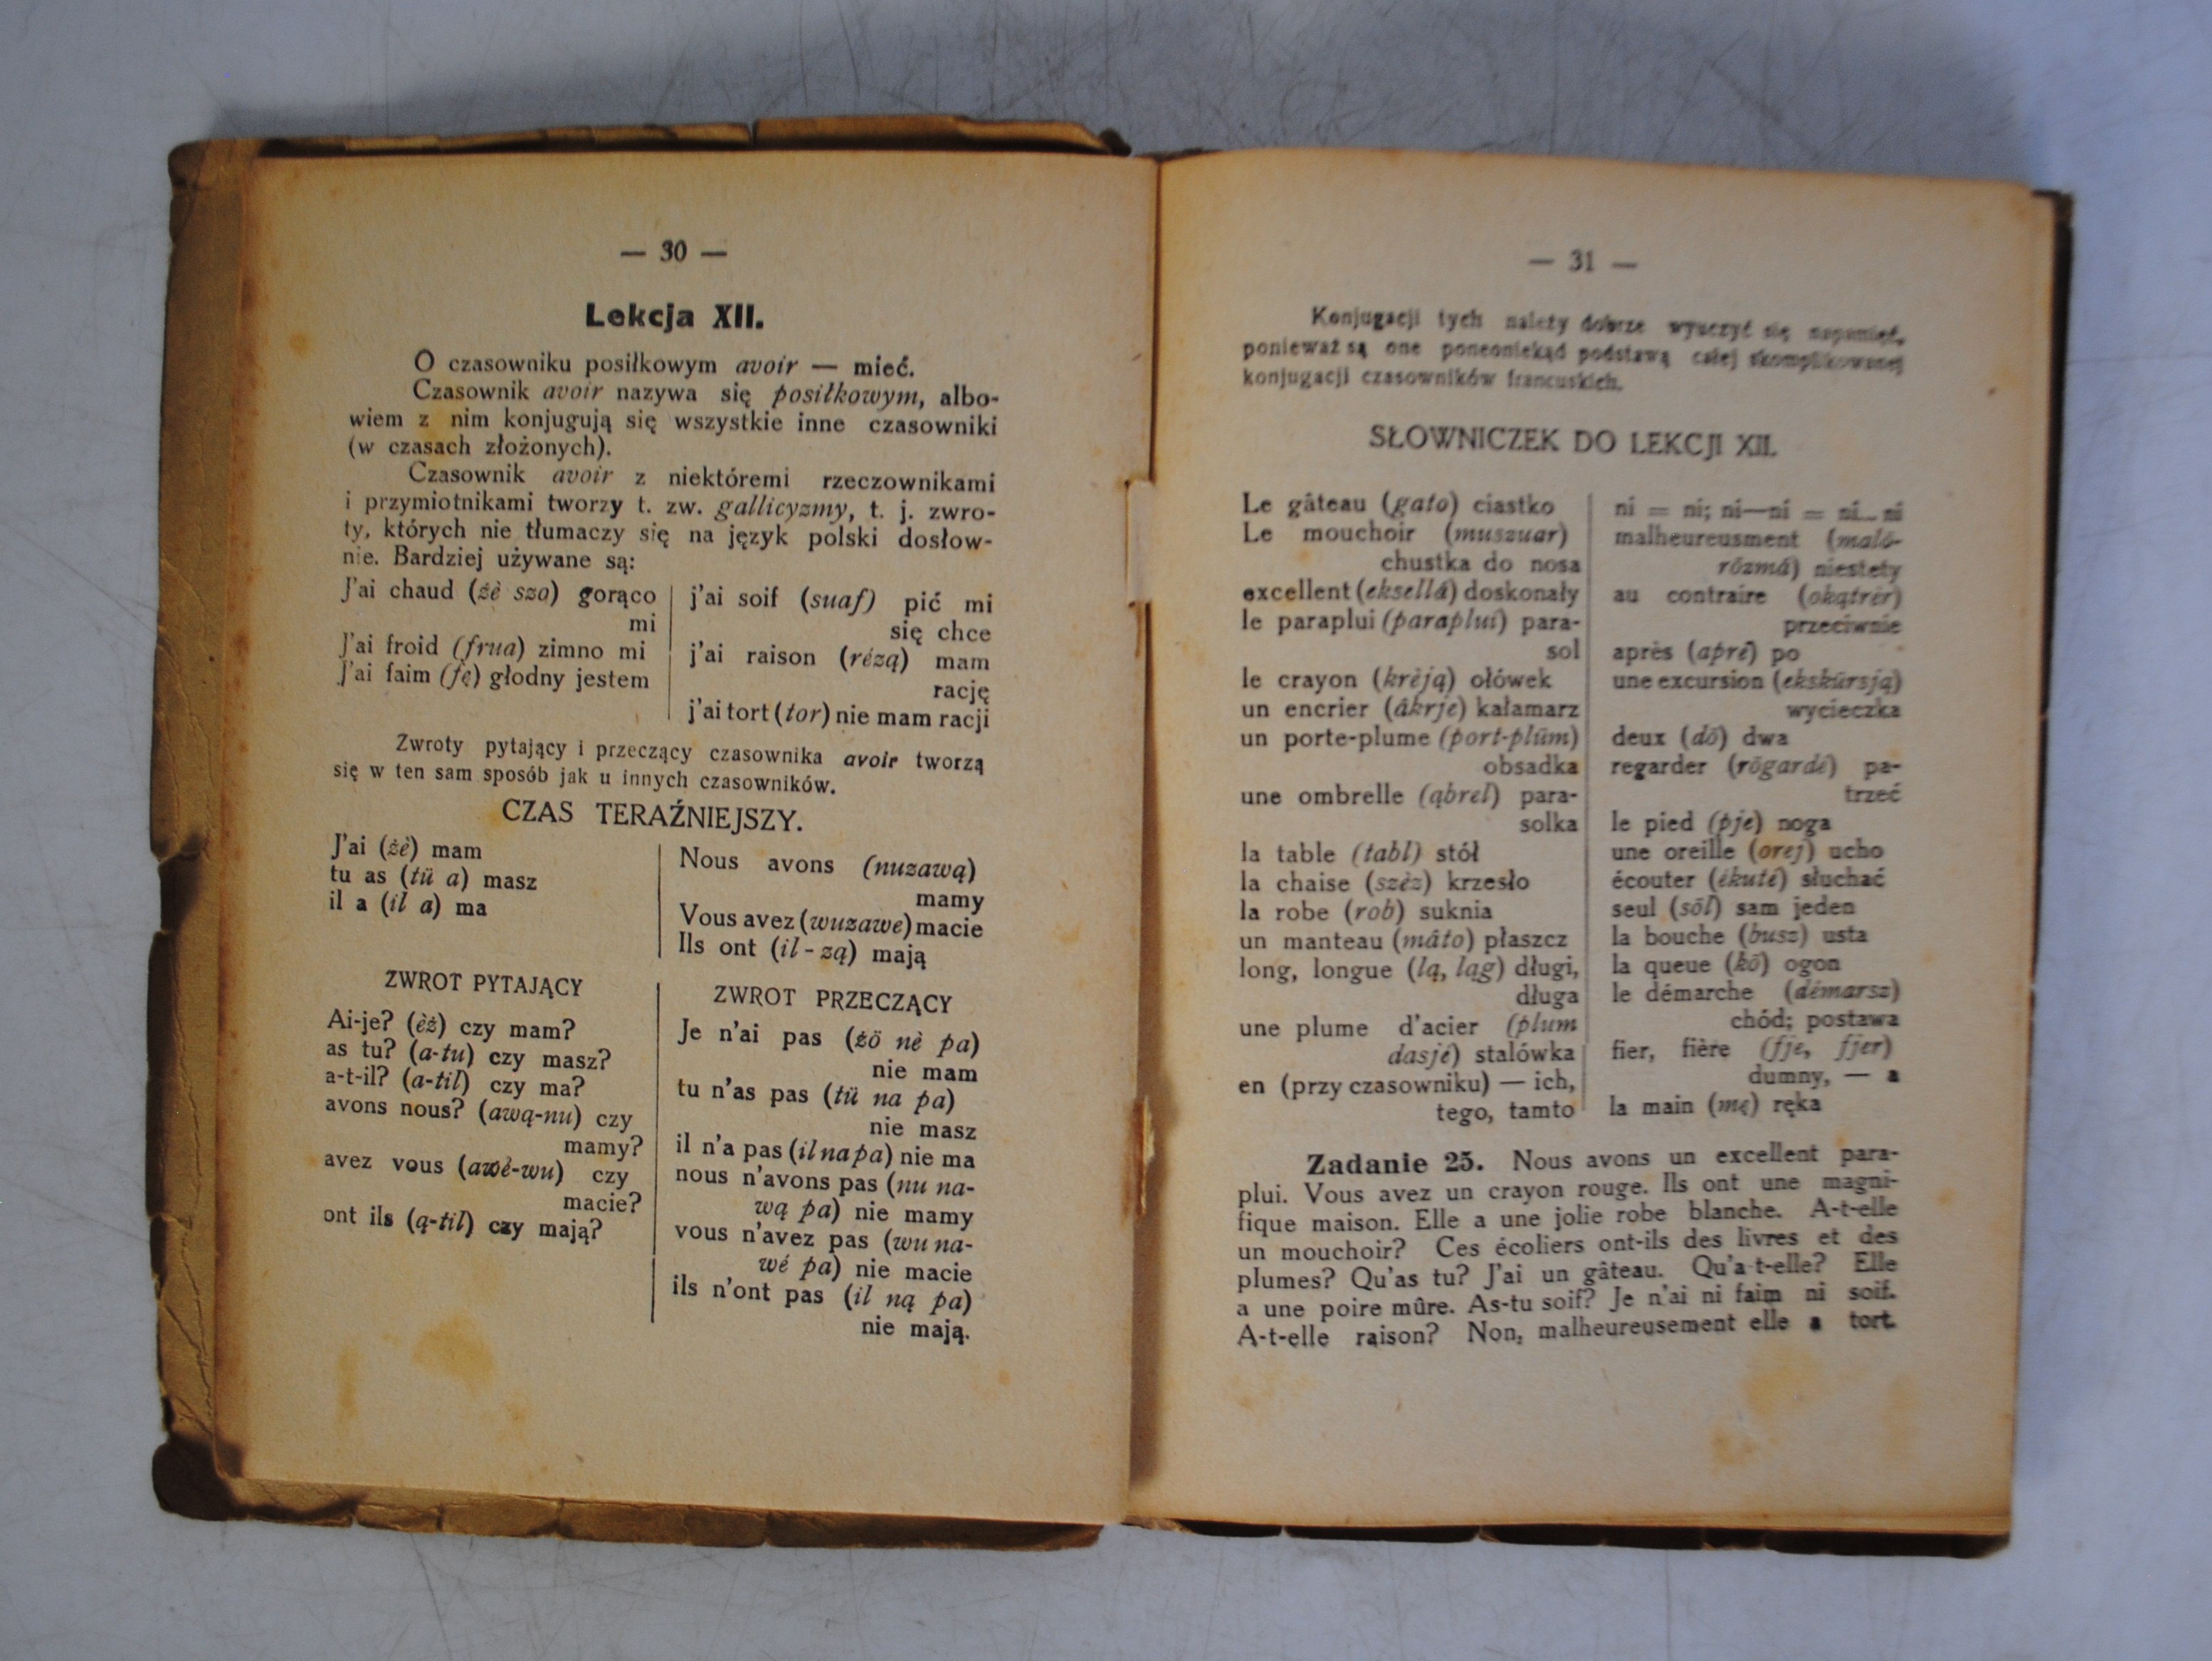 — 30 —
Lekcja XII.
O czasowniku posiłkowym avoir — mieć.
Czasownik avoir nazywa się posiłkowym, albo-
wiem z nim konjugują się wszystkie inne czasowniki
(w czasach złożonych).
Czasownik avoir z niektóremi rzeczownikami
i przymiotnikami tworzy t. zw. gallicyzmy, t. j. zwro-
ty, których nie tłumaczy się na język polski dosłow-
nie. Bardziej używane są:
J'ai chaud (żè szo) gorąco
mi
J'ai froid (frua) zimno mi
J'ai faim (fę) głodny jestem
j'ai soif (suaf) pić mi
się chce
j'ai raison (rézą) mam
rację
j'ai tort (tor) nie mam racji
Zwroty pytający i przeczący czasownika avoir tworzą
się w ten sam sposób jak u innych czasowników.
CZAS TERAŹNIEJSZY.
J'ai (żè) mam
tu as (tü a) masz
il a (il a) ma
Nous avons (nuzawą)
mamy
Vous avez (wuzawe) macie
Ils ont (il-zą) mają
ZWROT PYTAJĄCY
Ai-je? (èż) czy mam?
as tu? (a-tu) czy masz?
a-t-il? (a-til) czy ma?
avons nous? (awą-nu) czy
mamy?
avez vous (awè-wu) czy
macie?
ont ils (ą-til) czy mają?
ZWROT PRZECZĄCY
Je n'ai pas (żö nè pa)
nie mam
tu n'as pas (tü na pa)
nie masz
il n'a pas (il na pa) nie ma
nous n'avons pas (nu na-
wą pa) nie mamy
vous n'avez pas (wu na-
wé pa) nie macie
ils n'ont pas (il ną pa)
nie mają.
— 31 —
Konjugacji tych należy dobrze wyuczyć się napamięć,
ponieważ są one poneoniekąd podstawą całej skomplikowanej
konjugacji czasowników francuskich.
SŁOWNICZEK DO LEKCJI XII.
Le gâteau (gato) ciastko
Le mouchoir (muszuar)
chustka do nosa
excellent (eksellá) doskonały
le paraplui (paraplui) para-
sol
le crayon (krèją) ołówek
un encrier (ákrje) kałamarz
un porte-plume (port-plüm)
obsadka
une ombrelle (ąbrel) para-
solka
la table (tabl) stół
la chaise (szèz) krzesło
la robe (rob) suknia
un manteau (máto) płaszcz
long, longue (lą, ląg) długi,
długa
une plume d'acier (plum
dasjé) stalówka
en (przy czasowniku) — ich,
tego, tamto
ni = ni; ni—ni = ni—ni
malheureusment (malö-
rözmá) niestety
au contraire (okątrèr)
przeciwnie
après (apré) po
une excursion (ekskürsją)
wycieczka
deux (dö) dwa
regarder (rögardé) pa-
trzeć
le pied (pje) noga
une oreille (orej) ucho
écouter (ékuté) słuchać
seul (söl) sam jeden
la bouche (busz) usta
la queue (kö) ogon
le démarche (démarsz)
chód; postawa
fier, fière (fje, fjer)
dumny, — a
la main (mę) ręka
Zadanie 25. Nous avons un excellent para-
plui. Vous avez un crayon rouge. Ils ont une magni-
fique maison. Elle a une jolie robe blanche. A-t-elle
un mouchoir? Ces écoliers ont-ils des livres et des
plumes? Qu'as tu? J'ai un gâteau. Qu'a-t-elle? Elle
a une poire mûre. As-tu soif? Je n'ai ni faim ni soif.
A-t-elle raison? Non, malheureusement elle a tort.